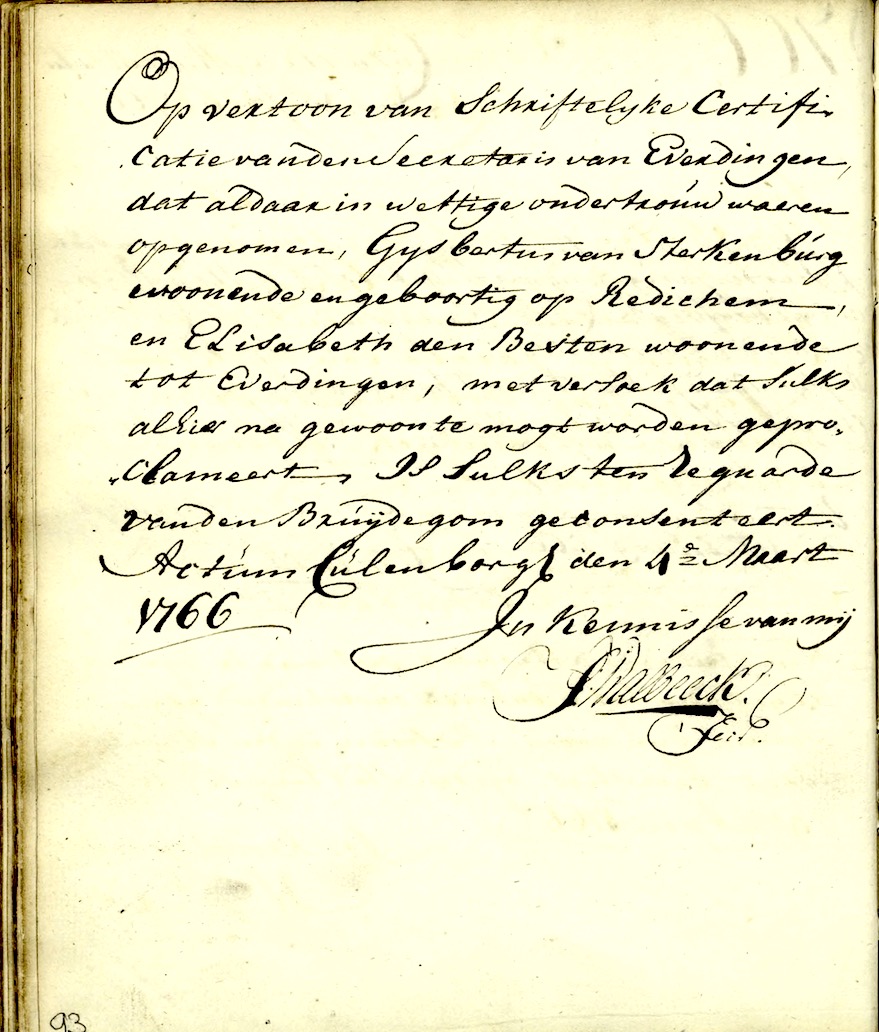 Op vertoon van Schriftelyke Certifi„
„Catie vanden Secretaris van Everdingen,
dat aldaar in wettige ondertrouw waeren
opgenomen, Gysbertus van Sterkenburg
woonende en geboortig op Redichem,
en Elisabeth den Besten woonende
tot Everdingen, met versoek dat sulks
alhier na gewoonte mogt worden gepro„
„Clameert, Is Sulks ten Reguarde
vanden Bruijdegom geconsenteert.
Actum Culenborg den 4e Maart
1766
In Kennisse van mij
93